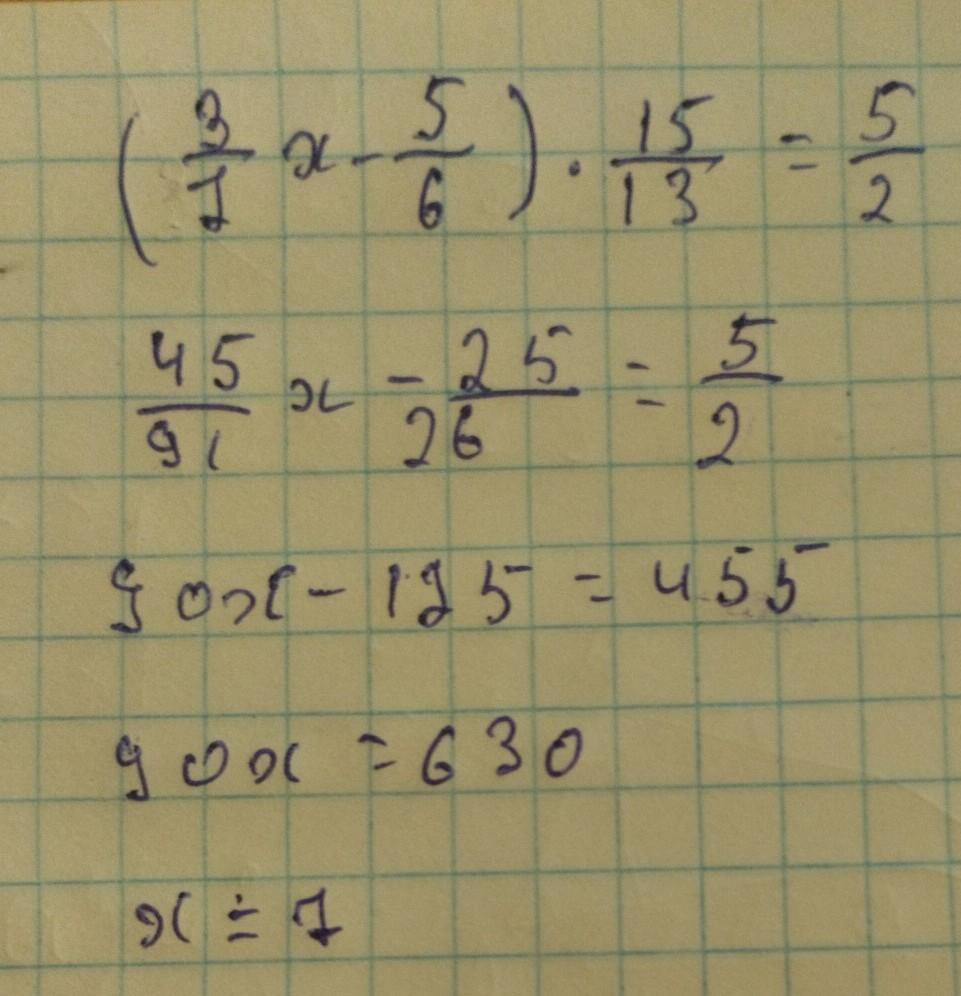 (3/7 x - 5/6) · 15/13 = 5/2
45/91 x - 25/26 = 5/2
90x - 175 = 455
90x = 630
x = 7